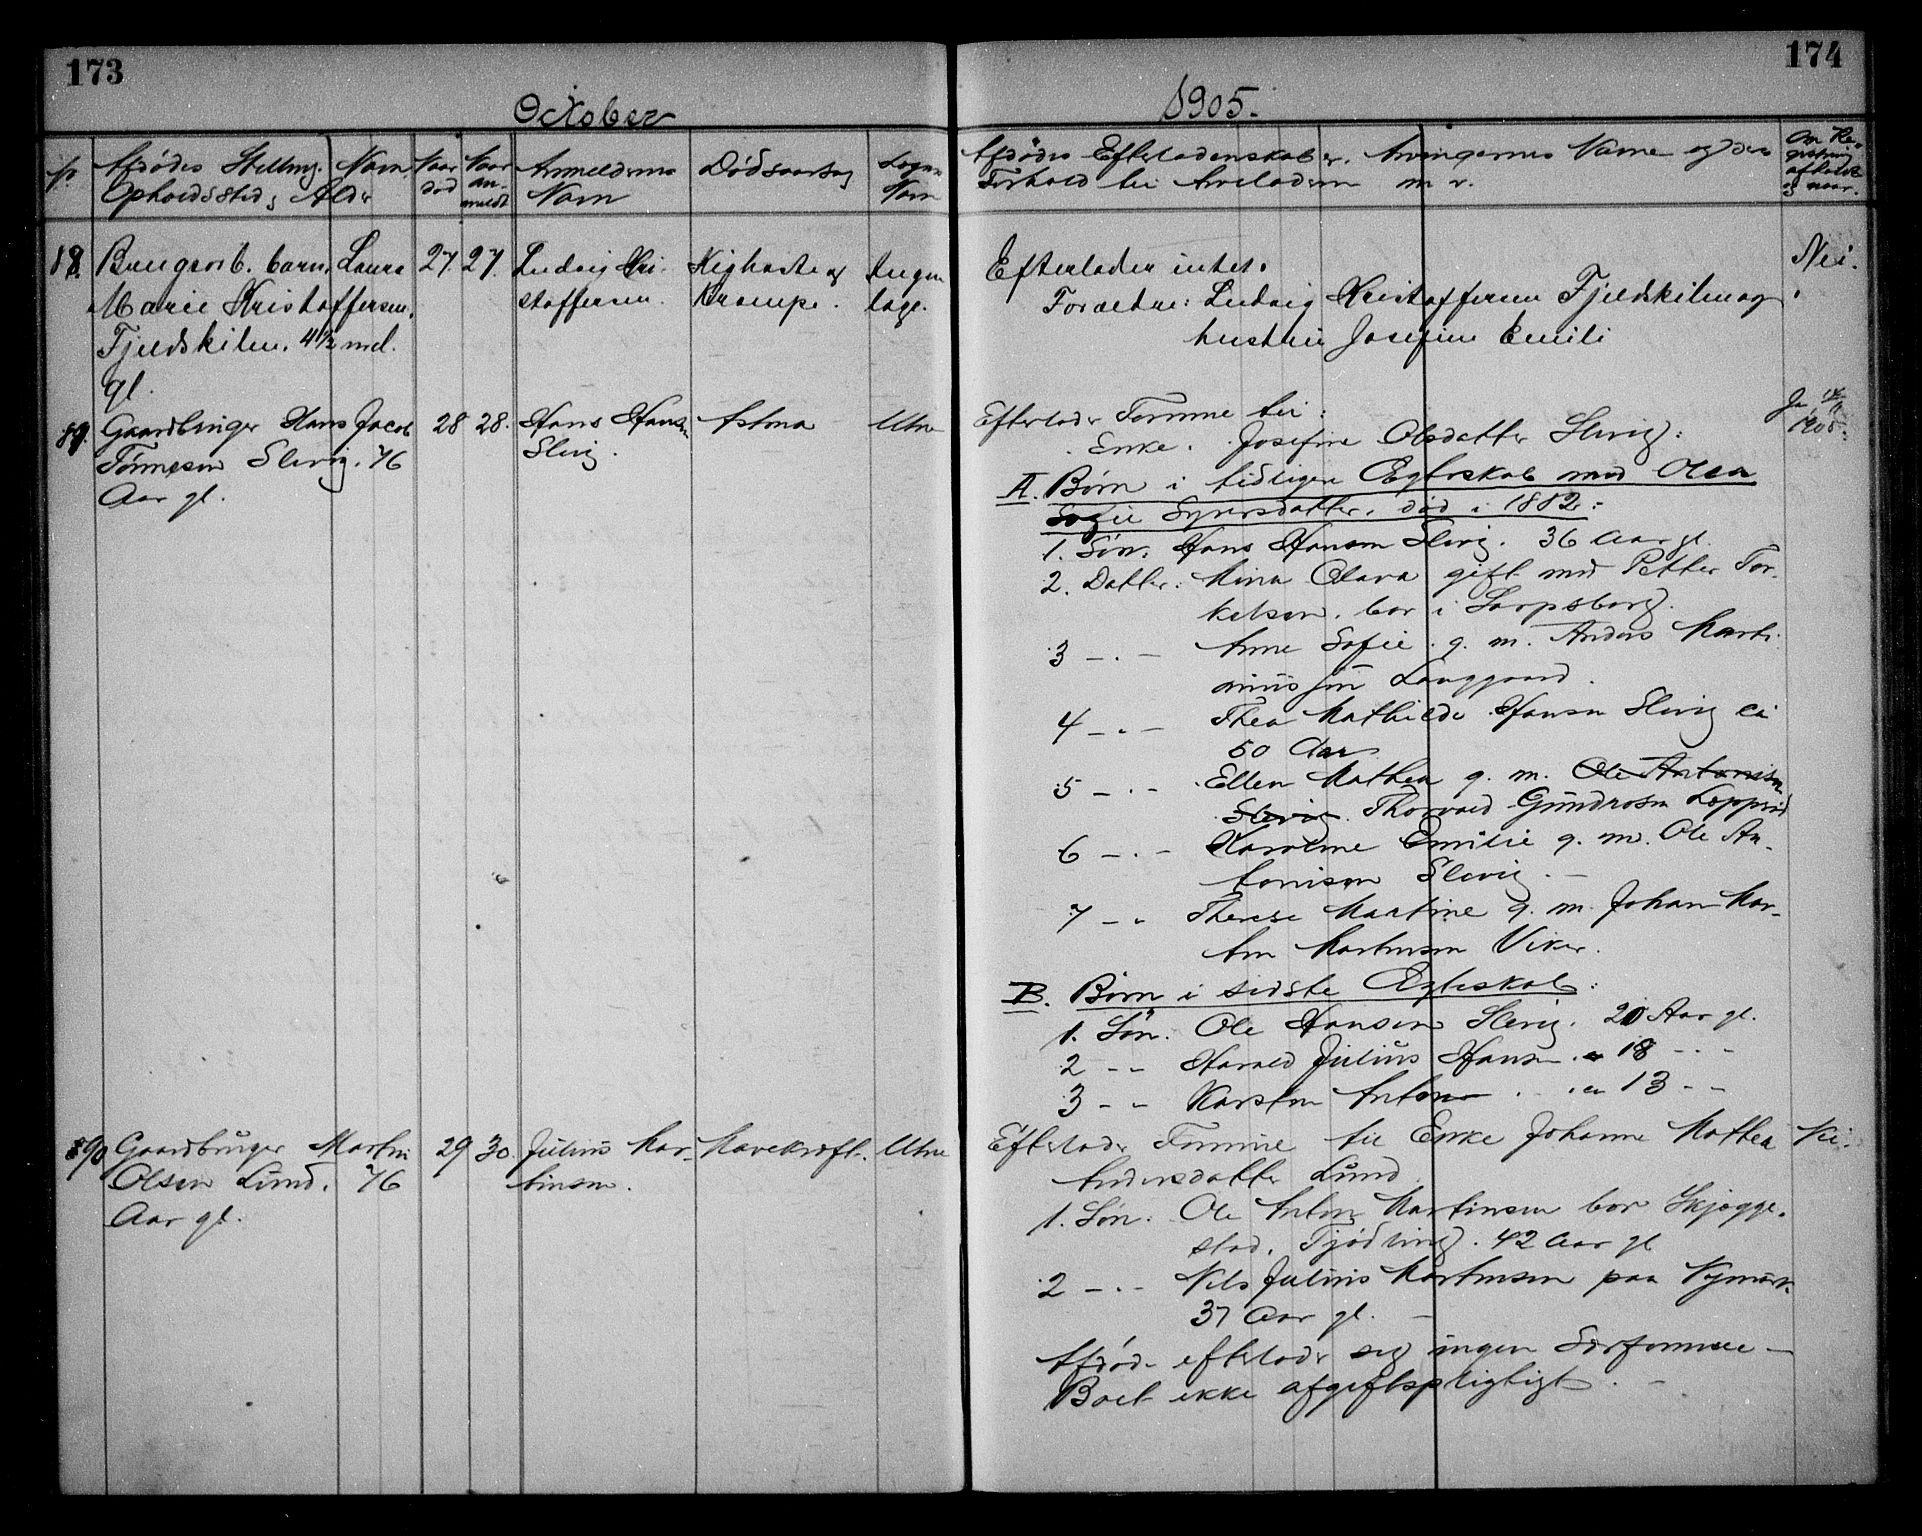 173
October
174
1905.
Nr.
Afdødes Stilling. Navn
Opholdssted, Alder
Naar
død
Naar
an-
meldt
Anmelderens
Navn
Dødsaarsag
Sogne
Navn
Afdødes Efterladenskaber. Arvingernes Navne og deres
Forhold til Arveladeren m. v.
Om Re-
gistering
afholdt
og naar.
barn, Laura
Marie Kristoffersen,
Fjeldskilen. 4½ md.
gl.
27. 27.
Ludvig Kri-
stoffersen.
Kighoste og
Krampe.
Ingen
læge.
Efterlader intet.
Forældre: Ludvig Kristoffersen Fjeldskilen og
hustru Josefine Emili
Nei.
89.
Gaardbruger Hans Jacob
Tønnesen Slevig. 76
Aar gl.
28 28.
Hans Hansen
Slevig.
Astma
Utne
Efterlader Formue til:
Enke. Josefine Olsdatter Slevig:
Ja,
1905.
A. Børn i tidligere Egteskab med Olea
Sofie Syversdatter, død i 1882:
1. Søn. Hans Hansen Slevig. 36 Aar gl.
2. Datter: Mina Olava gift med Petter Tor-
kelsen, bor i Sarpsborg.
3 - . - Anne Sofie g. m. Anders Marti-
niussøn Langgaard.
4 - . - Thea Mathilde Hansen Slevig ca
50 Aar
5 - . - Ellen Mathea g. m. Ole Antonisen
Slevig. Thorvald Gundrosen
6 - . - Karoline Emilie g. m. Ole An-
tonisen Slevig. -
7 - " Therese Martine g. m. Johan Mar-
tin Martinsen Viker.
B. Børn i sidste Egteskab:
1. Søn. Ole Hansen Slevig. 20 Aar gl.
2 - - Harald Julius Hansen. " 18 - . -
3 - - Karsten Anton . . " 13 - -
90
Gaardbruger Martin
Olsen Lund. 76
Aar gl.
29 30.
Julius Mar-
tinsen.
Mavekræft.
Utne
Efterlader Formue til Enke Johanne Mathea
Andersdatter Lund
Nei.
1. Søn. Ole Anton Martinsen bor Skjægge-
stad, Tjødling. 42 Aar gl
2 - . - Nils Julius Martinsen paa Nymark.
37 Aar gl. -
Afdøde efterlader sig ingen Særformue -
Boet ikke afgiftspligtigt. -